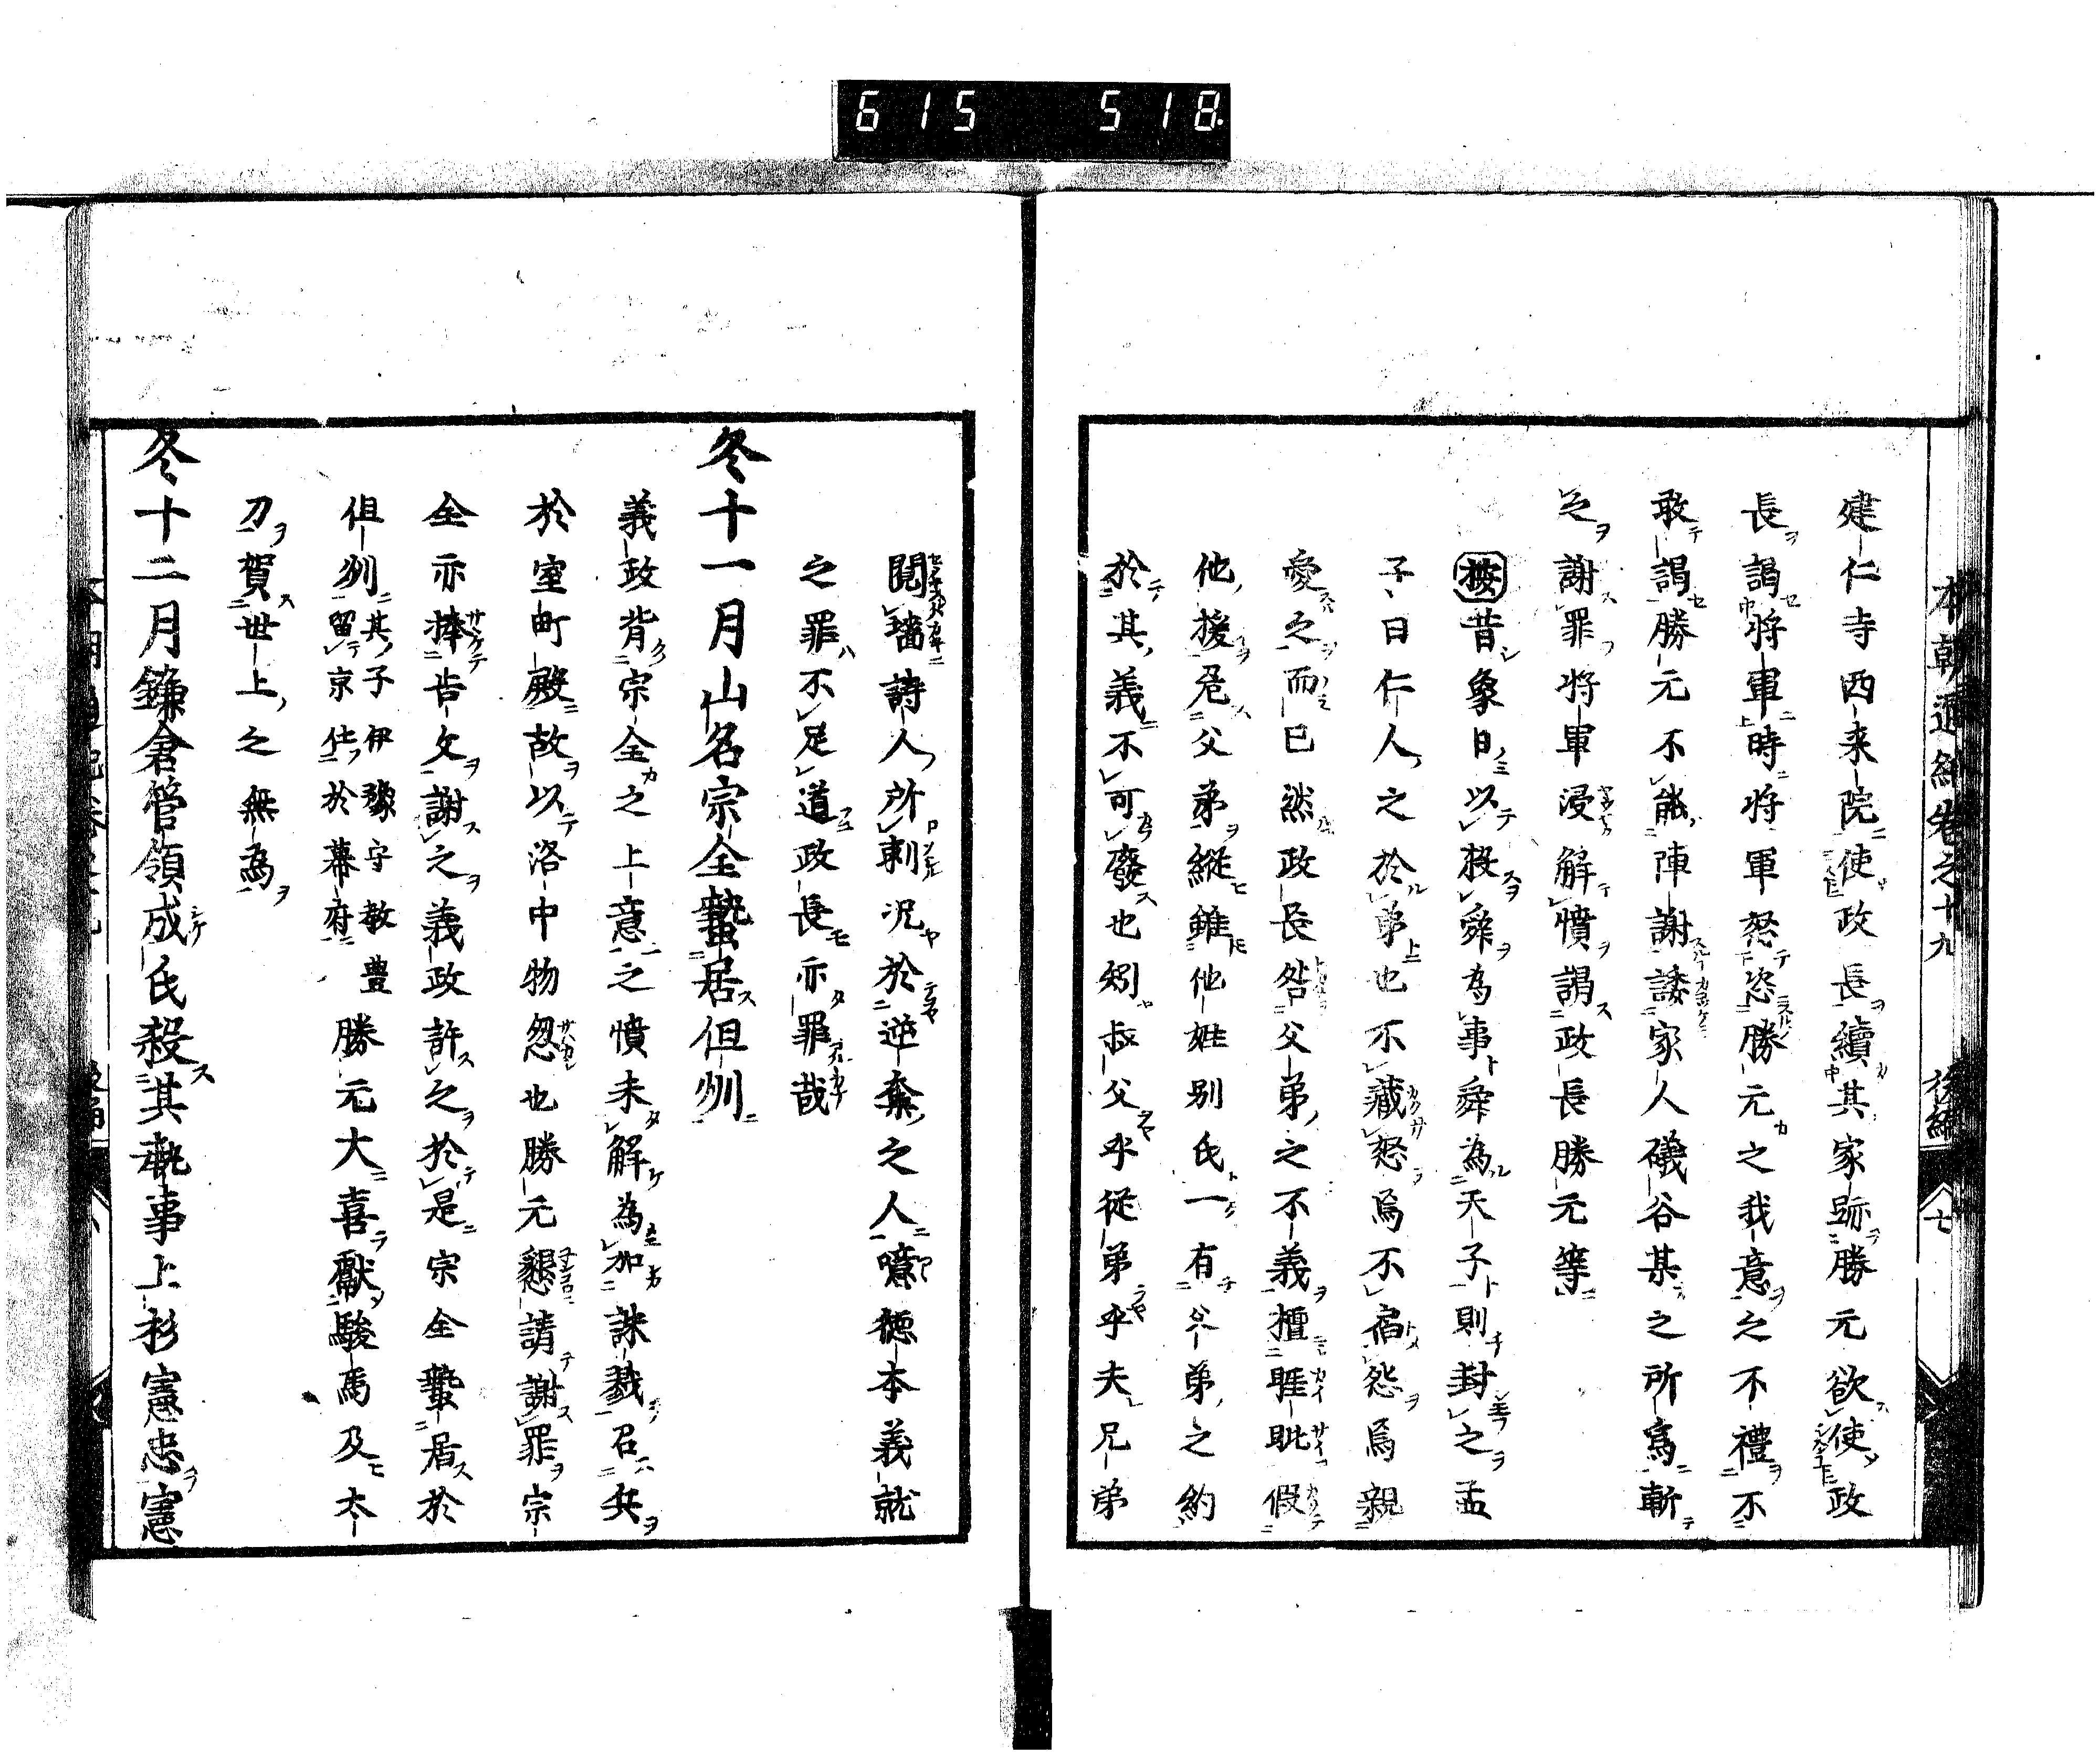 615 518.
本朝通紀卷之十九 後編 七
建仁寺西来院使政長續其家跡勝元欲使政
長謁將軍時將軍怒恣勝元之我意之不禮不
敢謁勝元不能陣謝諉家人礒谷某之所爲斬
之謝罪將軍浸解憤謁政長勝元等
按昔象日以殺舜為事舜為天子則封之孟
子曰仁人之於弟也不藏怒焉不宿怨焉親
愛之而已然政長咎父弟之不義擅睚眦假
他援危父弟縱雖他姓別氏一有父弟之約
於其義不可廢也矧叔父乎従弟乎夫兄弟
鬩墻詩人所刺况於逆奪之人噫德本義就
之罪不足道政長亦罪哉
冬十一月山名宗全蟄居但州
義政背宗全之上意之憤未解為加誅戮召兵
於室町殿故以洛中物忩也勝元懇請謝罪宗
全亦捧告文謝之義政許之於是宗全蟄居於
但州其子伊豫守教豊留京仕於幕府勝元大喜獻駿馬及太
刀賀世上之無為
冬十二月鎌倉管領成氏殺其執事上杉憲忠憲